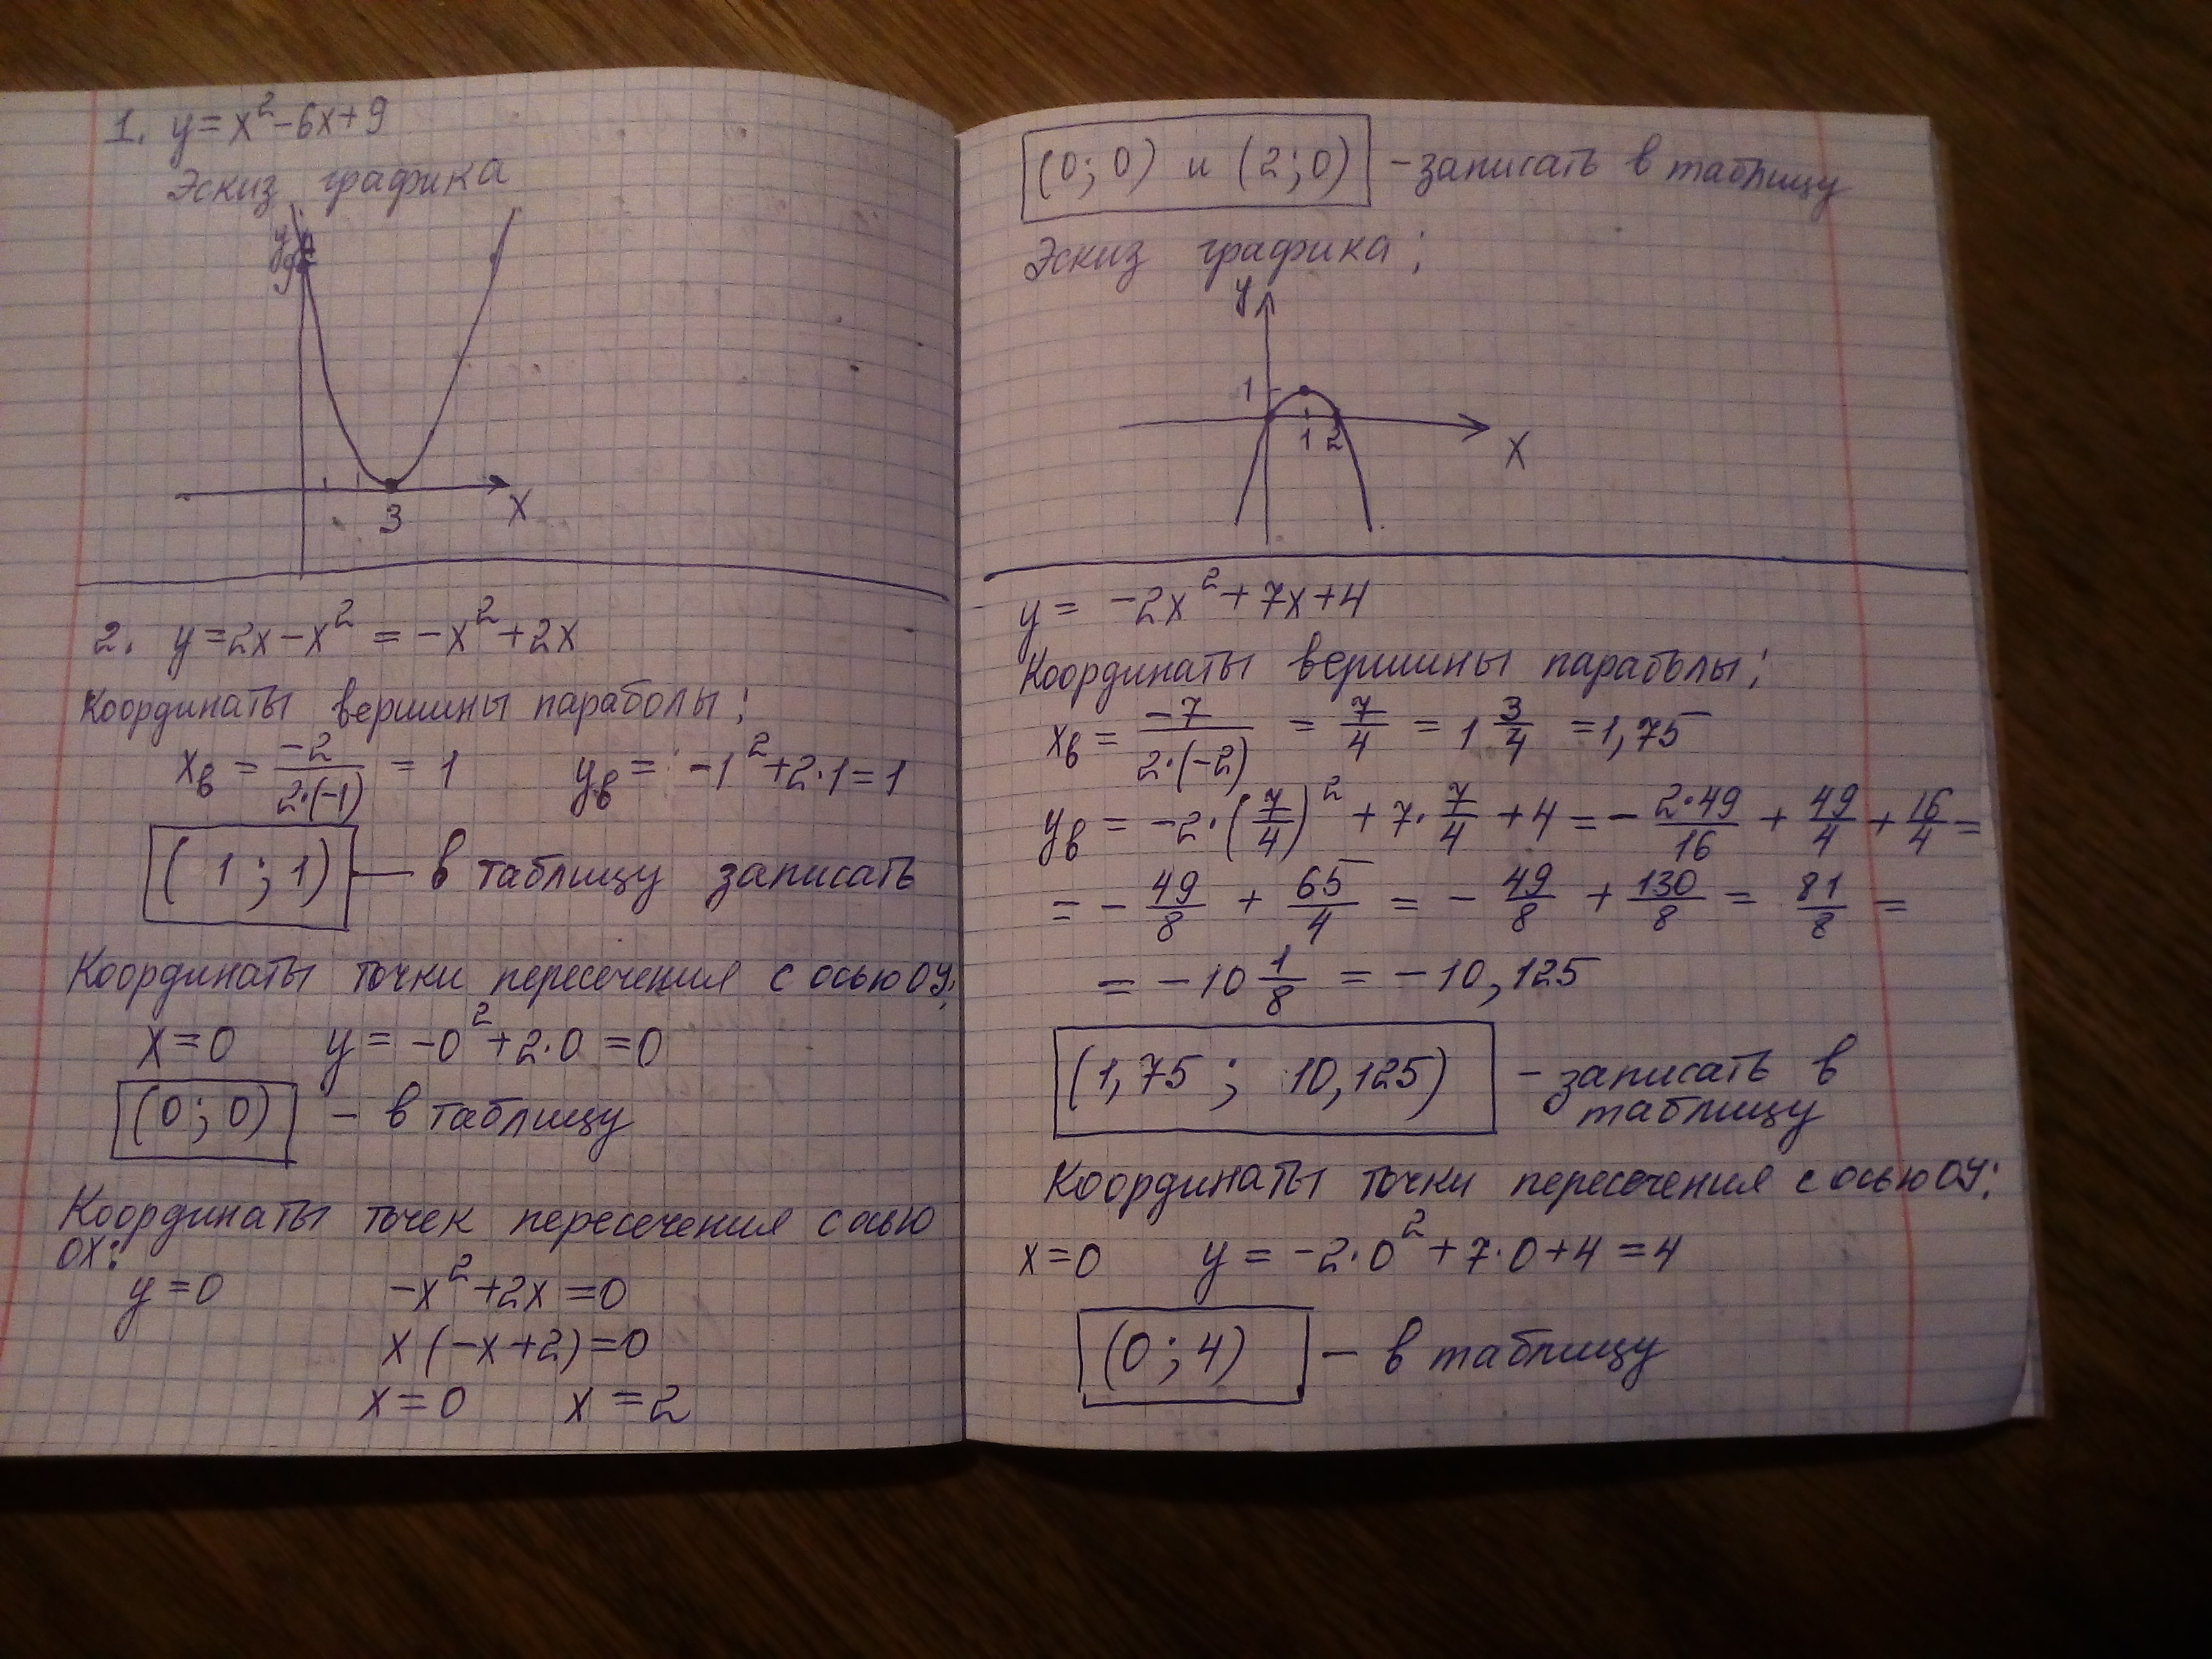 1. y = x² - 6x + 9
Эскиз графика
y
9
3
x
2. y = 2x - x² = -x² + 2x
Координаты вершины параболы:
xв = -2/(2·(-1)) = 1     yв = -1² + 2·1 = 1
(1; 1) — в таблицу записать
Координаты точки пересечения с осью OY:
x = 0     y = -0² + 2·0 = 0
(0; 0) - в таблицу
Координаты точек пересечения с осью
OX:
y = 0     -x² + 2x = 0
x(-x+2) = 0
x = 0     x = 2
(0; 0) и (2; 0) - записать в таблицу
Эскиз графика:
y
1
1 2
x
y = -2x² + 7x + 4
Координаты вершины параболы:
xв = -7/(2·(-2)) = 7/4 = 1 3/4 = 1,75
yв = -2·(7/4)² + 7·7/4 + 4 = - 2·49/16 + 49/4 + 16/4 =
= - 49/8 + 65/4 = - 49/8 + 130/8 = 81/8 =
= -10 1/8 = -10,125
(1,75; 10,125) - записать в
таблицу
Координаты точки пересечения с осью OY:
x = 0     y = -2·0² + 7·0 + 4 = 4
(0; 4) — в таблицу